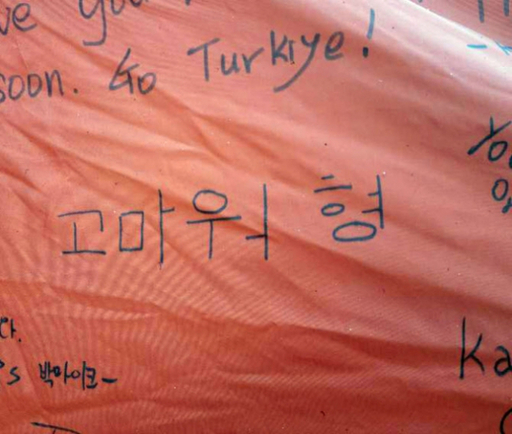 soon. Go Turkiye!
고마워 형
다.
's 박아이코-
Ka